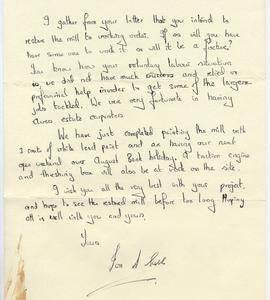 I gather from your letter that you intend to
restore the mill to working order. If so will you have
have some one to work it or will it be a feature?
You know how your voluntary labour situation
so we did not have much success and relied on
professional help inorder to get some of the largeer
jobs tackled. We are very fortunate in having
estate carpenters
We have just completed painting the mill with
3 coats of white lead paint and are having our next
open weekend over August Bank holiday. A traction engine
and threshing box will also be at Stock on the site.
I wish you all the very best with your project,
and hope to see the restored mill before too long. Hoping
all is well with you and yours.
Yours